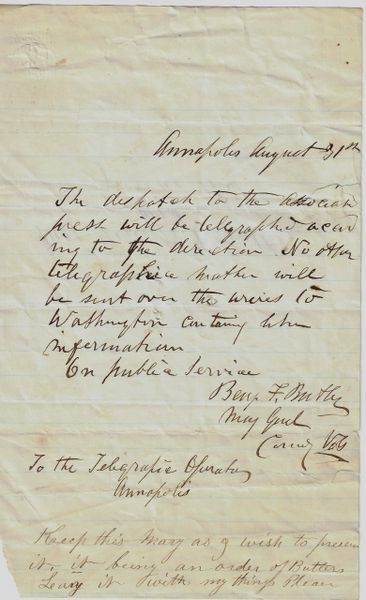 Annapolis August 31st
The dispatch to the associate
press will be telegraphed accord
ing to the direction No other
telegraphic matter will
be sent over the wires to
Washington containg
information
On public Service
Benj F. Butler
Maj Genl
Comdg Vols
To the Telegrafic Operator
Annapolis
Keep this Mary as I wish to preserve
it, it being an order of Butlers
Leave it with my things Please